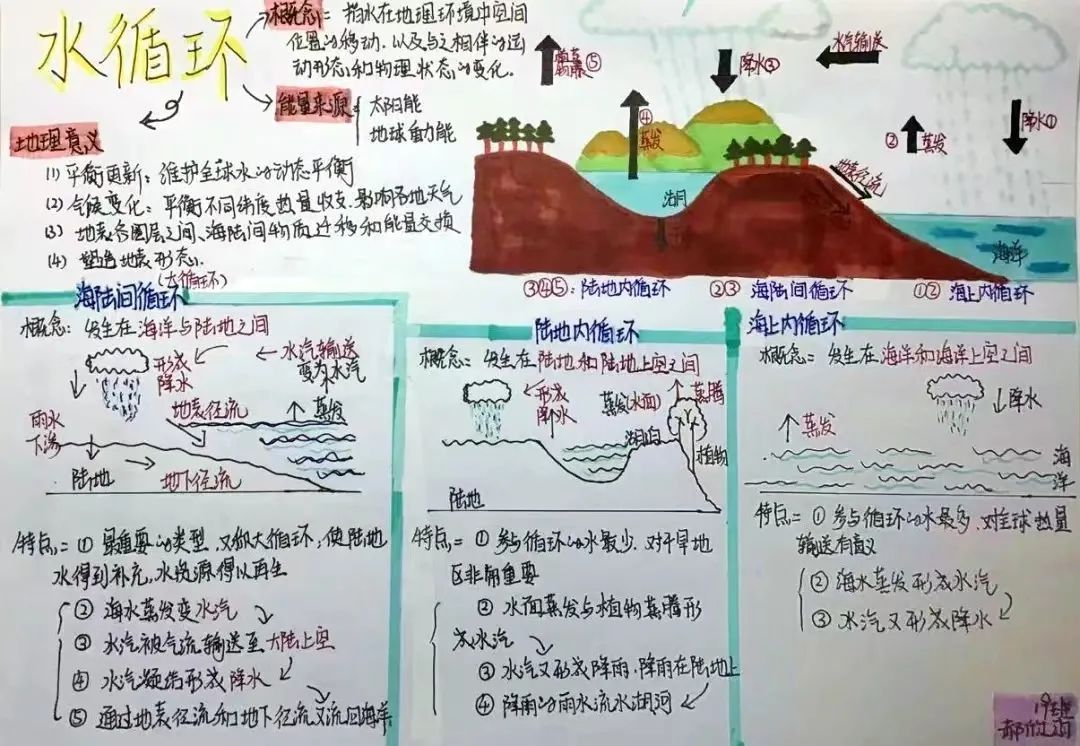 水循环
概念：指水在地理环境中空间
位置的移动，以及与之相伴的运
动形态和物理状态的变化。
能量来源
太阳能
地球重力能
地理意义
(1) 平衡更新：维护全球水的动态平衡
(2) 气候变化：平衡不同纬度热量收支，影响各地天气
(3) 地表各圈层之间、海陆间物质迁移和能量交换
(4) 塑造地表形态
⑤
降水③
水汽输送
④
蒸发
②
蒸发
降水①
湖泊
地表径流
海洋
③④⑤：陆地内循环
②③ 海陆间循环
①② 海上内循环
(大循环)
海陆间循环
概念：发生在海洋与陆地之间
形成
降水
水汽输送
变为水汽
雨水
下渗
地表径流
蒸发
陆地
地下径流
特点：① 最重要的类型，又称大循环，使陆地
水得到补充，水资源得以再生
② 海水蒸发变水汽
③ 水汽被气流输送至大陆上空
④ 水汽凝结形成降水
⑤ 通过地表径流和地下径流又流回海洋
陆地内循环
概念：发生在陆地和陆地上空之间
形成
降水
蒸发(水面)
蒸腾
湖泊
植物
陆地
特点：① 参与循环的水最少，对干旱地
区非常重要
② 水面蒸发与植物蒸腾形
成水汽
③ 水汽又形成降雨，降雨在陆地上
④ 降雨的雨水流水湖河
海上内循环
概念：发生在海洋和海洋上空之间
蒸发
降水
海
洋
特点：① 参与循环的水最多，对全球热量
输送有意义
② 海水蒸发形成水汽
③ 水汽又形成降水
19班